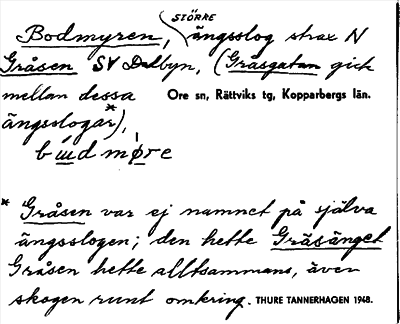 STÖRRE
Bodmyren, (ängsslog strax N
Gråsen SV Dalbyn, (Gråsgatan gick
mellan dessa Ore sn, Rättviks tg, Kopparbergs län.
ängsslogar*),
* Gråsen var ej namnet på själva
ängsslogen; den hette Gräsänget
Gråsen hette alltsammans, även
skogen runt omkring. THURE TANNERHAGEN 1948.